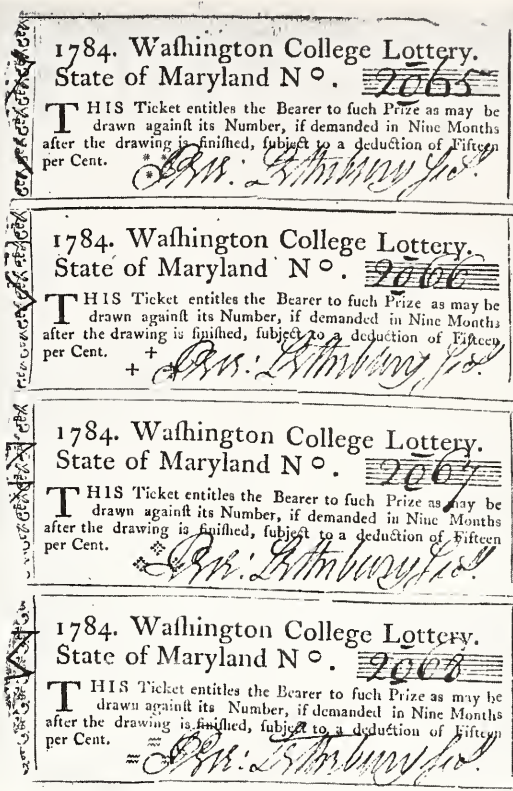 1784. Waſhington College Lottery.
State of Maryland Nº. 2065
THIS Ticket entitles the Bearer to ſuch Prize as may be
drawn againſt its Number, if demanded in Nine Months
after the drawing is finiſhed, ſubject to a deduction of Fifteen
per Cent.
1784. Waſhington College Lottery.
State of Maryland Nº. 2066
THIS Ticket entitles the Bearer to ſuch Prize as may be
drawn againſt its Number, if demanded in Nine Months
after the drawing is finiſhed, ſubject to a deduction of Fifteen
per Cent.
1784. Waſhington College Lottery.
State of Maryland Nº. 2067
THIS Ticket entitles the Bearer to ſuch Prize as may be
drawn againſt its Number, if demanded in Nine Months
after the drawing is finiſhed, ſubject to a deduction of Fifteen
per Cent.
1784. Waſhington College Lottery.
State of Maryland Nº. 2068
THIS Ticket entitles the Bearer to ſuch Prize as may be
drawn againſt its Number, if demanded in Nine Months
after the drawing is finiſhed, ſubject to a deduction of Fifteen
per Cent.